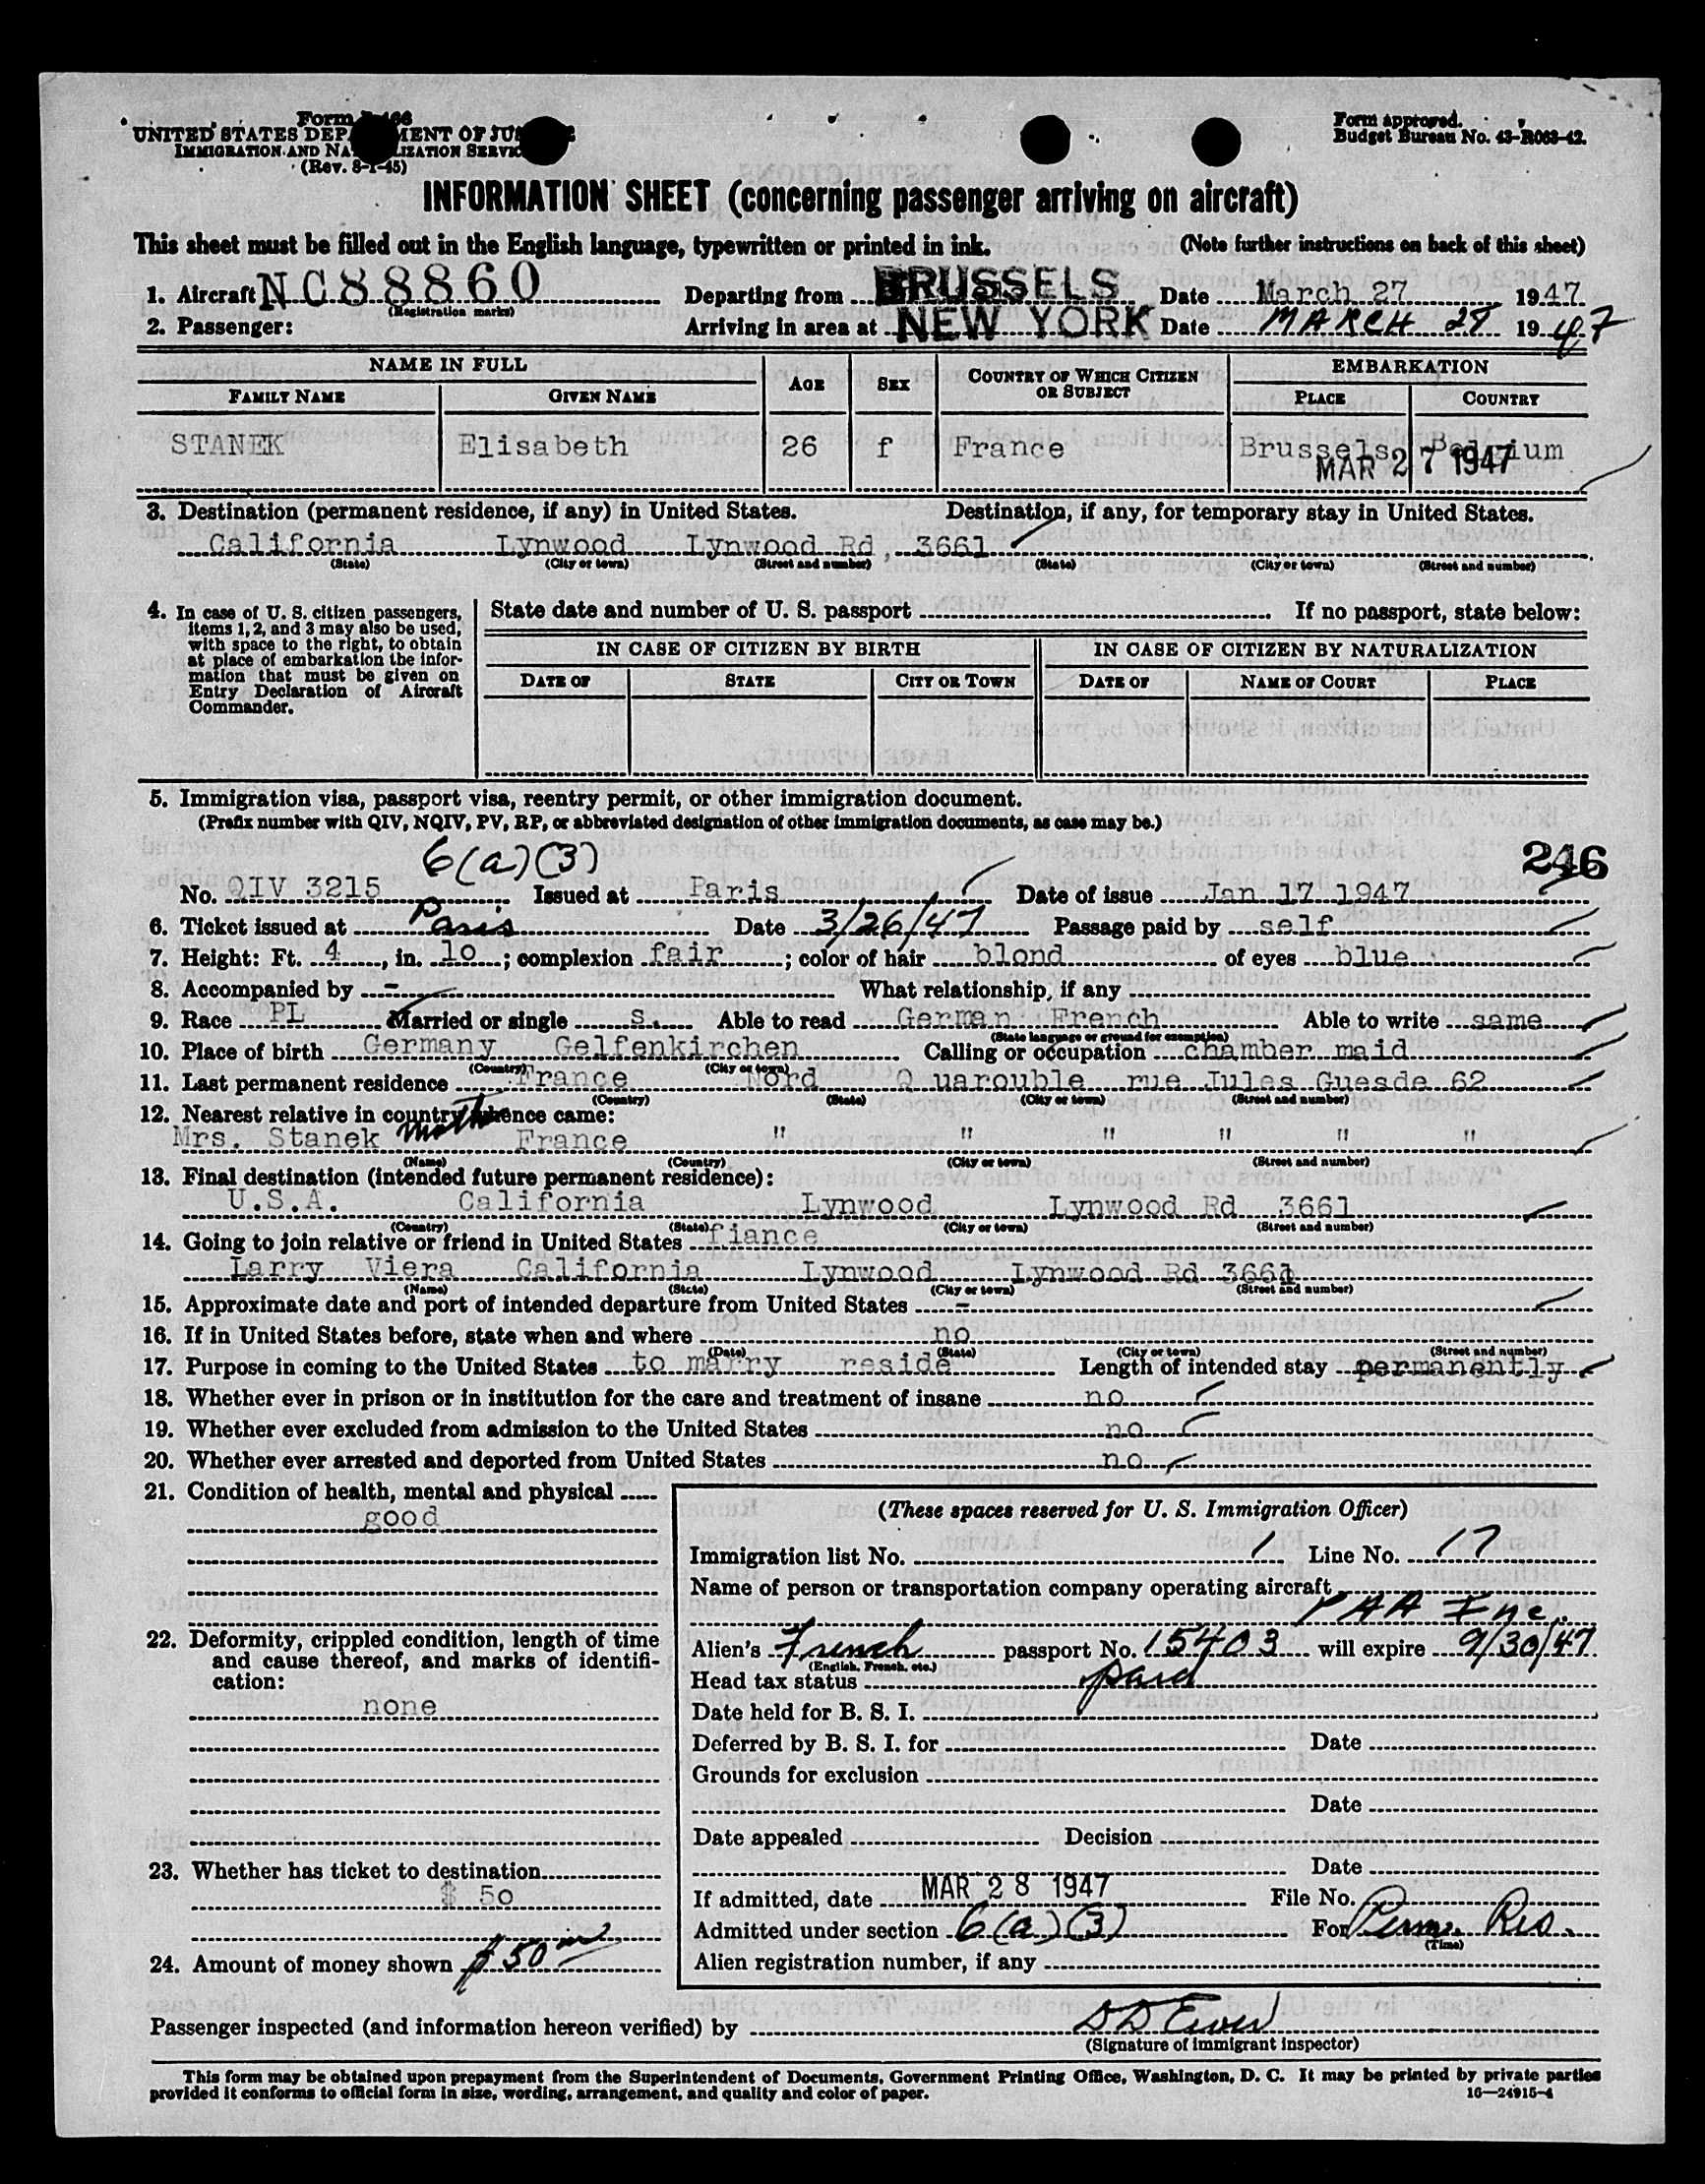 Form I-466
UNITED STATES DEPARTMENT OF JUSTICE
IMMIGRATION AND NATURALIZATION SERVICE
(Rev. 8-1-45)
Form approved.
Budget Bureau No. 43-R063-42.
INFORMATION SHEET (concerning passenger arriving on aircraft)
This sheet must be filled out in the English language, typewritten or printed in ink. (Note further instructions on back of this sheet)
1. Aircraft NC88860 Departing from BRUSSELS Date March 27 1947
(Registration marks)
2. Passenger: Arriving in area at NEW YORK Date MARCH 28 1947
NAME IN FULL AGE SEX COUNTRY OF WHICH CITIZEN OR SUBJECT EMBARKATION
FAMILY NAME GIVEN NAME PLACE COUNTRY
STANEK Elisabeth 26 f France Brussels Belgium
MAR 27 1947
3. Destination (permanent residence, if any) in United States. Destination, if any, for temporary stay in United States.
California Lynwood Lynwood Rd, 3661
(State) (City or town) (Street and number) (State) (City or town) (Street and number)
4. In case of U. S. citizen passengers, items 1, 2, and 3 may also be used, with space to the right, to obtain at place of embarkation the information that must be given on Entry Declaration of Aircraft Commander.
State date and number of U. S. passport If no passport, state below:
IN CASE OF CITIZEN BY BIRTH IN CASE OF CITIZEN BY NATURALIZATION
DATE OF STATE CITY OR TOWN DATE OF NAME OF COURT PLACE
5. Immigration visa, passport visa, reentry permit, or other immigration document.
(Prefix number with QIV, NQIV, PV, RP, or abbreviated designation of other immigration documents, as case may be.)
6(a)(3) 246
No. QIV 3215 Issued at Paris Date of issue Jan 17 1947
6. Ticket issued at Paris Date 3/26/47 Passage paid by self
7. Height: Ft. 4, in. 10; complexion fair; color of hair blond of eyes blue
8. Accompanied by - What relationship, if any
9. Race PL Married or single s. Able to read German French Able to write same
(State language or ground for exemption)
10. Place of birth Germany Gelfenkirchen Calling or occupation chamber maid
(Country) (City or town)
11. Last permanent residence France Nord Quarouble rue Jules Guesde 62
(Country) (State) (City or town) (Street and number)
12. Nearest relative in country whence came:
Mrs. Stanek Moth France " " " " " "
(Name) (Country) (City or town) (Street and number)
13. Final destination (intended future permanent residence):
U.S.A. California Lynwood Lynwood Rd 3661
(Country) (State) (City or town) (Street and number)
14. Going to join relative or friend in United States fiance
Larry Viera California Lynwood Lynwood Rd 3661
(Name) (State) (City or town) (Street and number)
15. Approximate date and port of intended departure from United States -
16. If in United States before, state when and where no
(Date) (State) (City or town) (Street and number)
17. Purpose in coming to the United States to marry reside Length of intended stay permanently
18. Whether ever in prison or in institution for the care and treatment of insane no
19. Whether ever excluded from admission to the United States no
20. Whether ever arrested and deported from United States no
21. Condition of health, mental and physical
good
22. Deformity, crippled condition, length of time and cause thereof, and marks of identification:
none
23. Whether has ticket to destination
$ 50
24. Amount of money shown $50
(These spaces reserved for U. S. Immigration Officer)
Immigration list No. 1 Line No. 17
Name of person or transportation company operating aircraft
PAA Inc.
Alien's French passport No. 15403 will expire 9/30/47
(English, French, etc.)
Head tax status paid
Date held for B. S. I.
Deferred by B. S. I. for Date
Grounds for exclusion
Date
Date appealed Decision
Date
If admitted, date MAR 28 1947 File No.
Admitted under section 6(a)(3) For Perm. Res.
(Time)
Alien registration number, if any
Passenger inspected (and information hereon verified) by
(Signature of immigrant inspector)
This form may be obtained upon prepayment from the Superintendent of Documents, Government Printing Office, Washington, D. C. It may be printed by private parties
provided it conforms to official form in size, wording, arrangement, and quality and color of paper. 16—24915-4